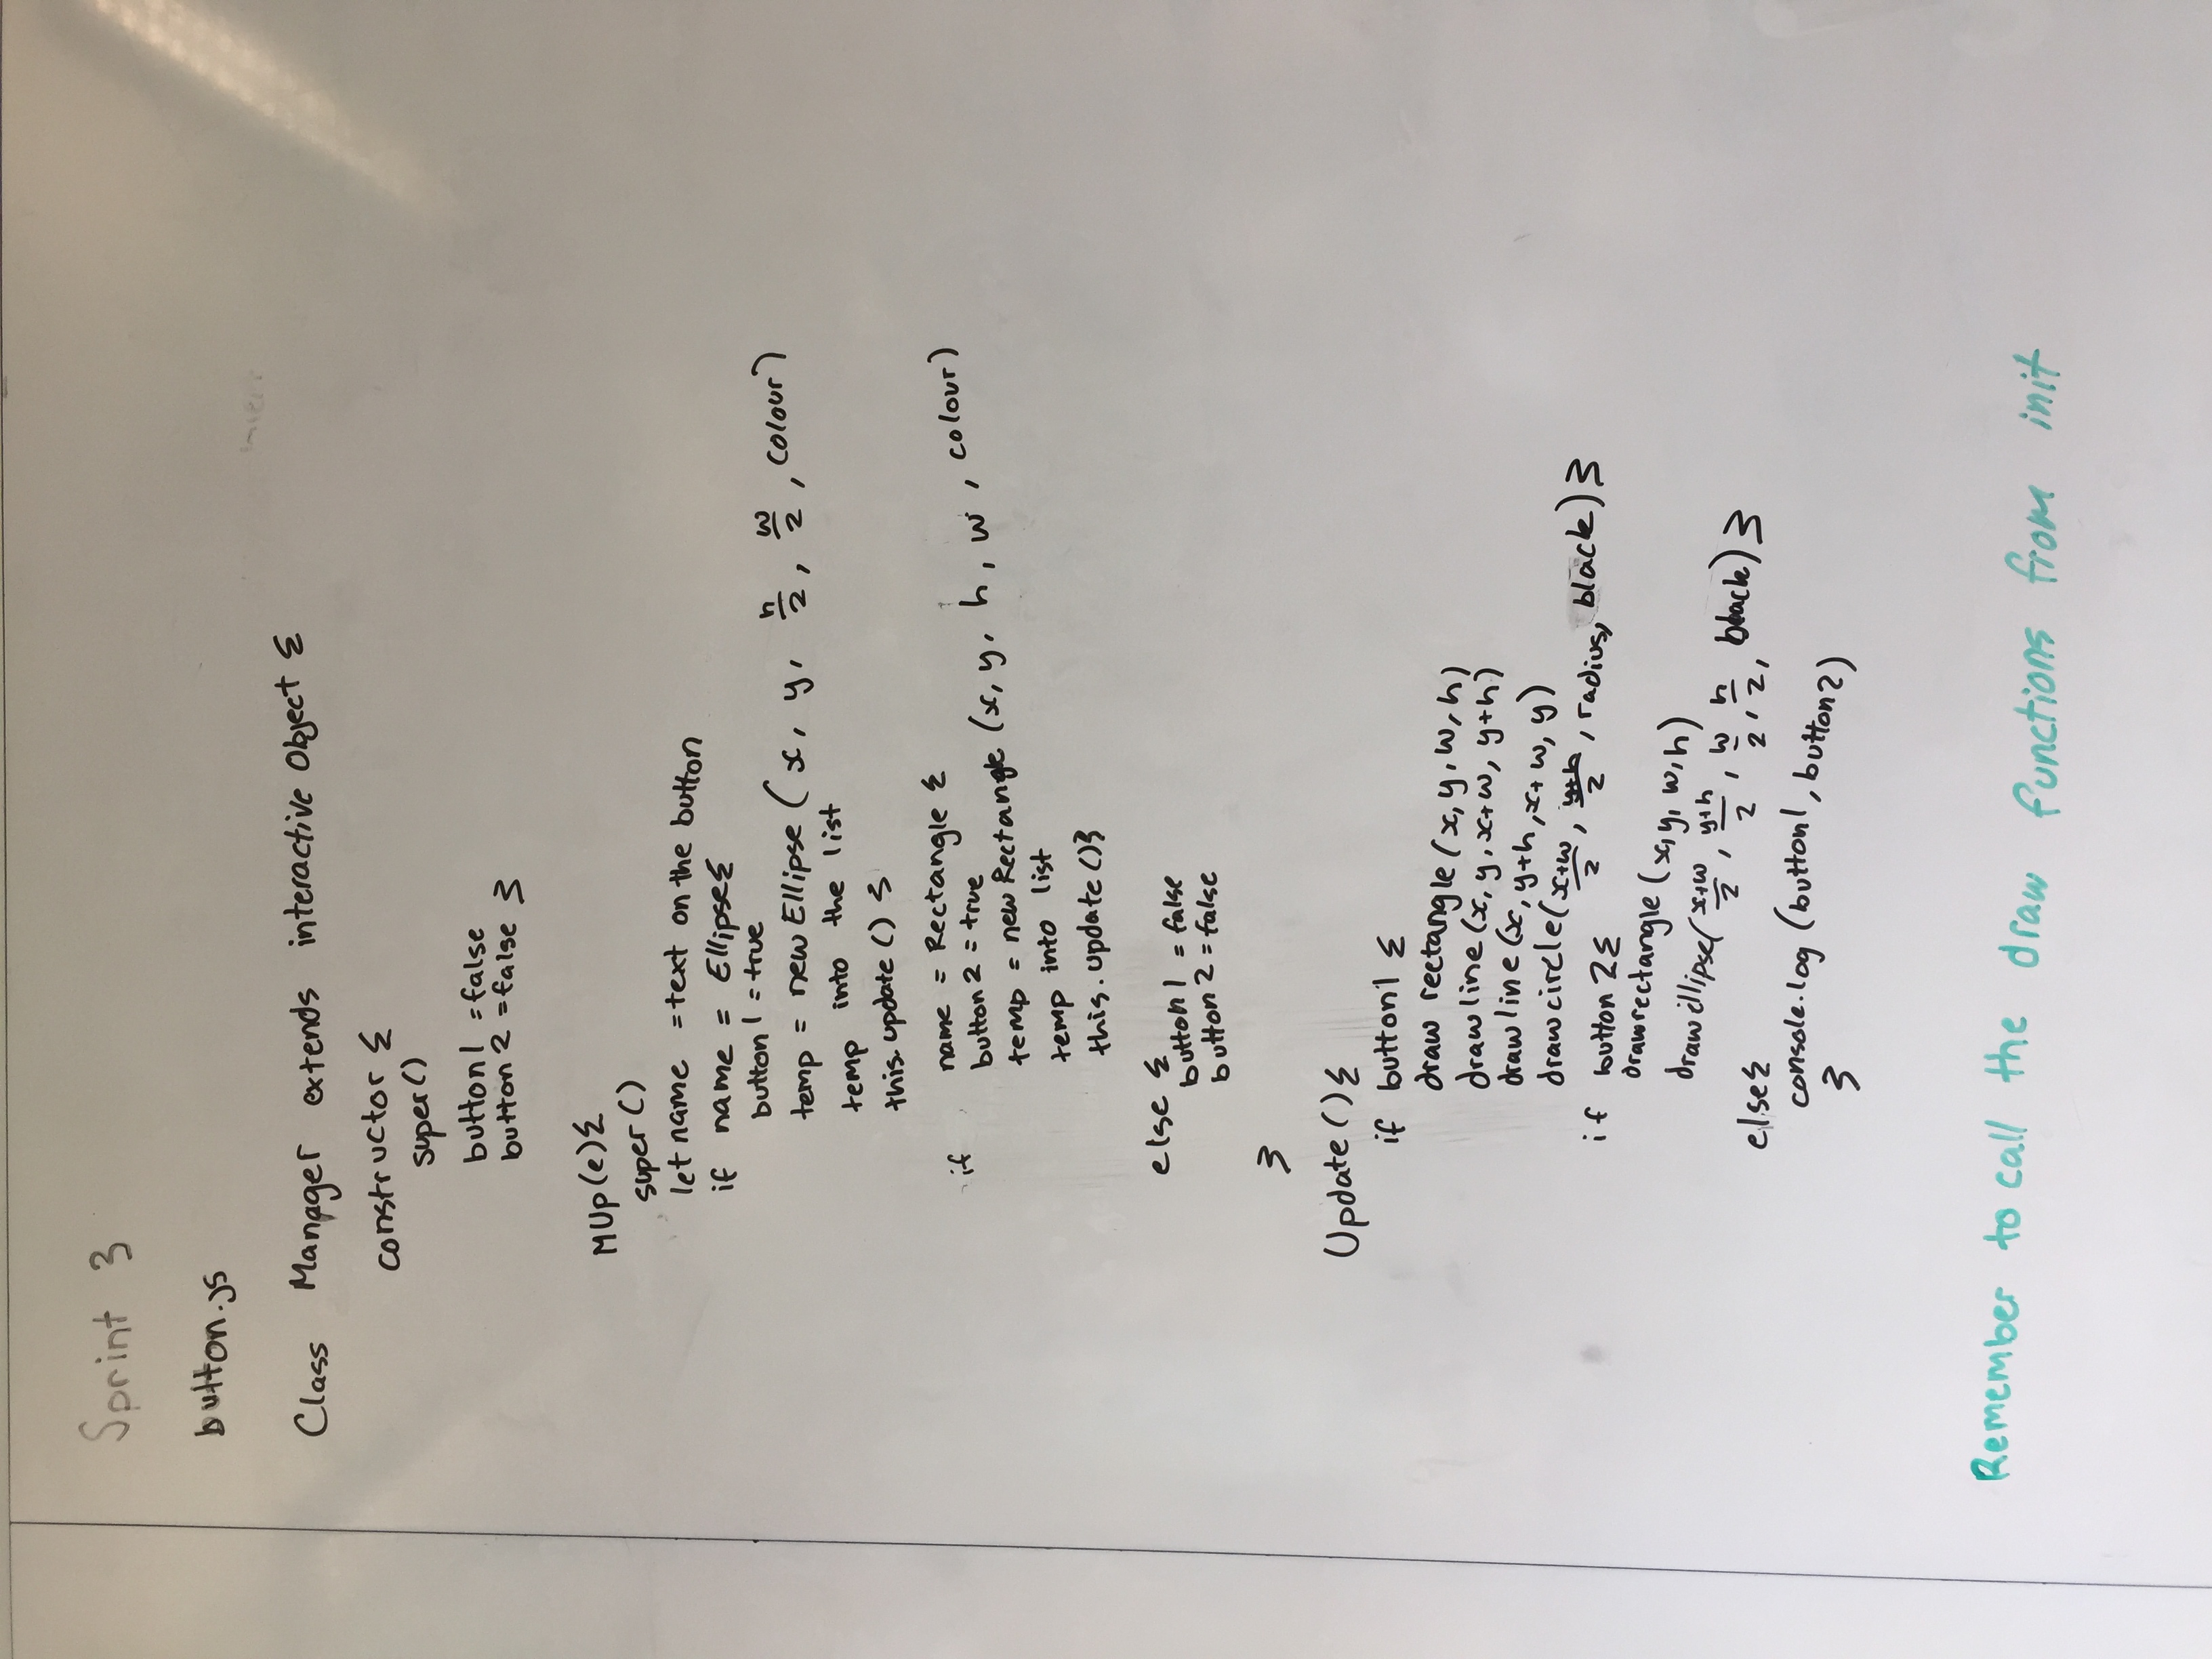 Sprint 3
button.js
Class Manager extends interactive Object {
constructor {
super()
button1 = false
button2 = false }
MUp(e){
super()
let name = text on the button
if name = Ellipse{
button1 = true
temp = new Ellipse (x, y, h/2, w/2, colour)
temp into the list
this.update() }
if name = Rectangle {
button2 = true
temp = new Rectangle (x, y, h, w, colour)
temp into list
this.update()}
else {
button1 = false
button2 = false
}
Update(){
if button1 {
draw rectangle(x, y, w, h)
draw line(x, y, x+w, y+h)
draw line(x, y+h, x+w, y)
draw circle(x+w/2, y+h/2, radius, black)}
if button2{
draw rectangle(x, y, w, h)
draw ellipse(x+w/2, y+h/2, w/2, h/2, black)}
else{
console.log (button1, button2)
}
Remember to call the draw functions from init